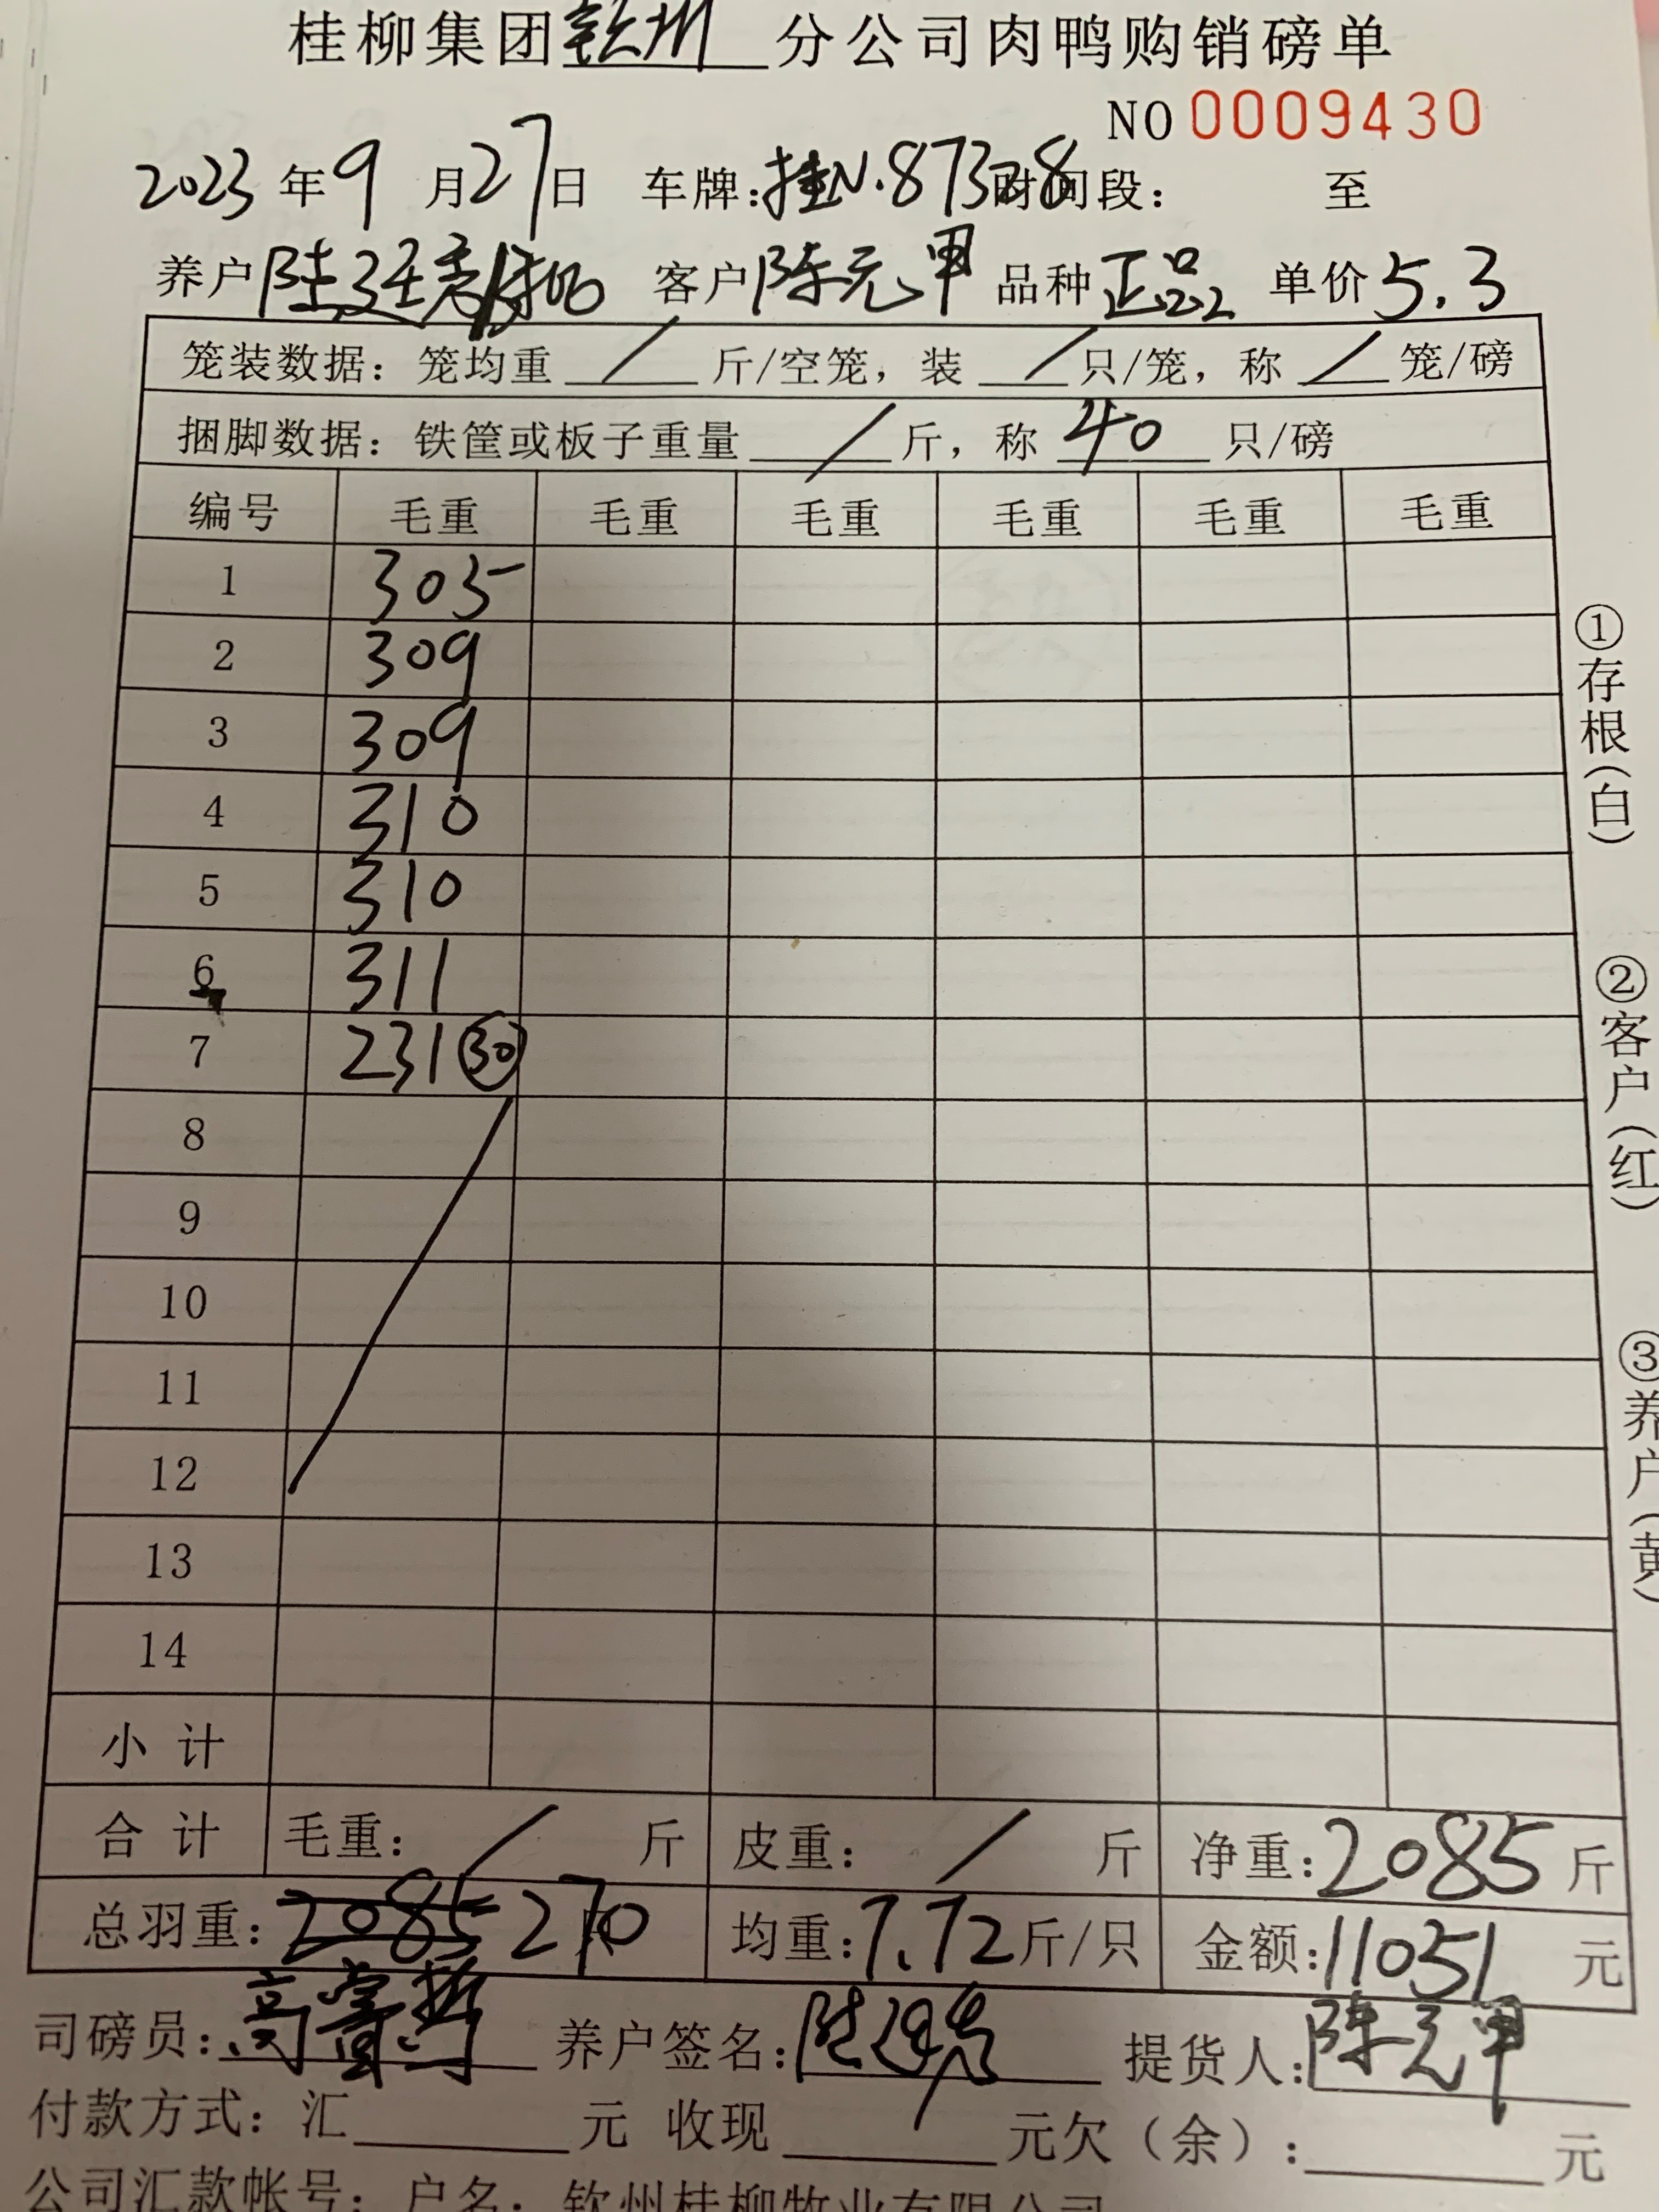 桂柳集团钦州分公司肉鸭购销磅单
NO 0009430
2023年9月27日 车牌:桂N.87328时间段: 至
养户陆廷秀 客户陈元甲 品种正品 单价5.3
笼装数据:笼均重/斤/空笼,装/只/笼,称/笼/磅
捆脚数据:铁筐或板子重量/斤,称40只/磅
编号 毛重 毛重 毛重 毛重 毛重 毛重
1 305
2 309
3 309
4 310
5 310
6 311
7 231 30
8
9
10
11
12
13
14
小计
合计 毛重:/斤 皮重:/斤 净重:2085斤
总羽重:2085 270 均重:7.72斤/只 金额:11051元
司磅员: 养户签名: 提货人:陈元甲
付款方式:汇 元 收现 元欠(余): 元
公司汇款帐号:户名:钦州桂柳牧业有限公司
①存根(白)
②客户(红)
③养户(黄)